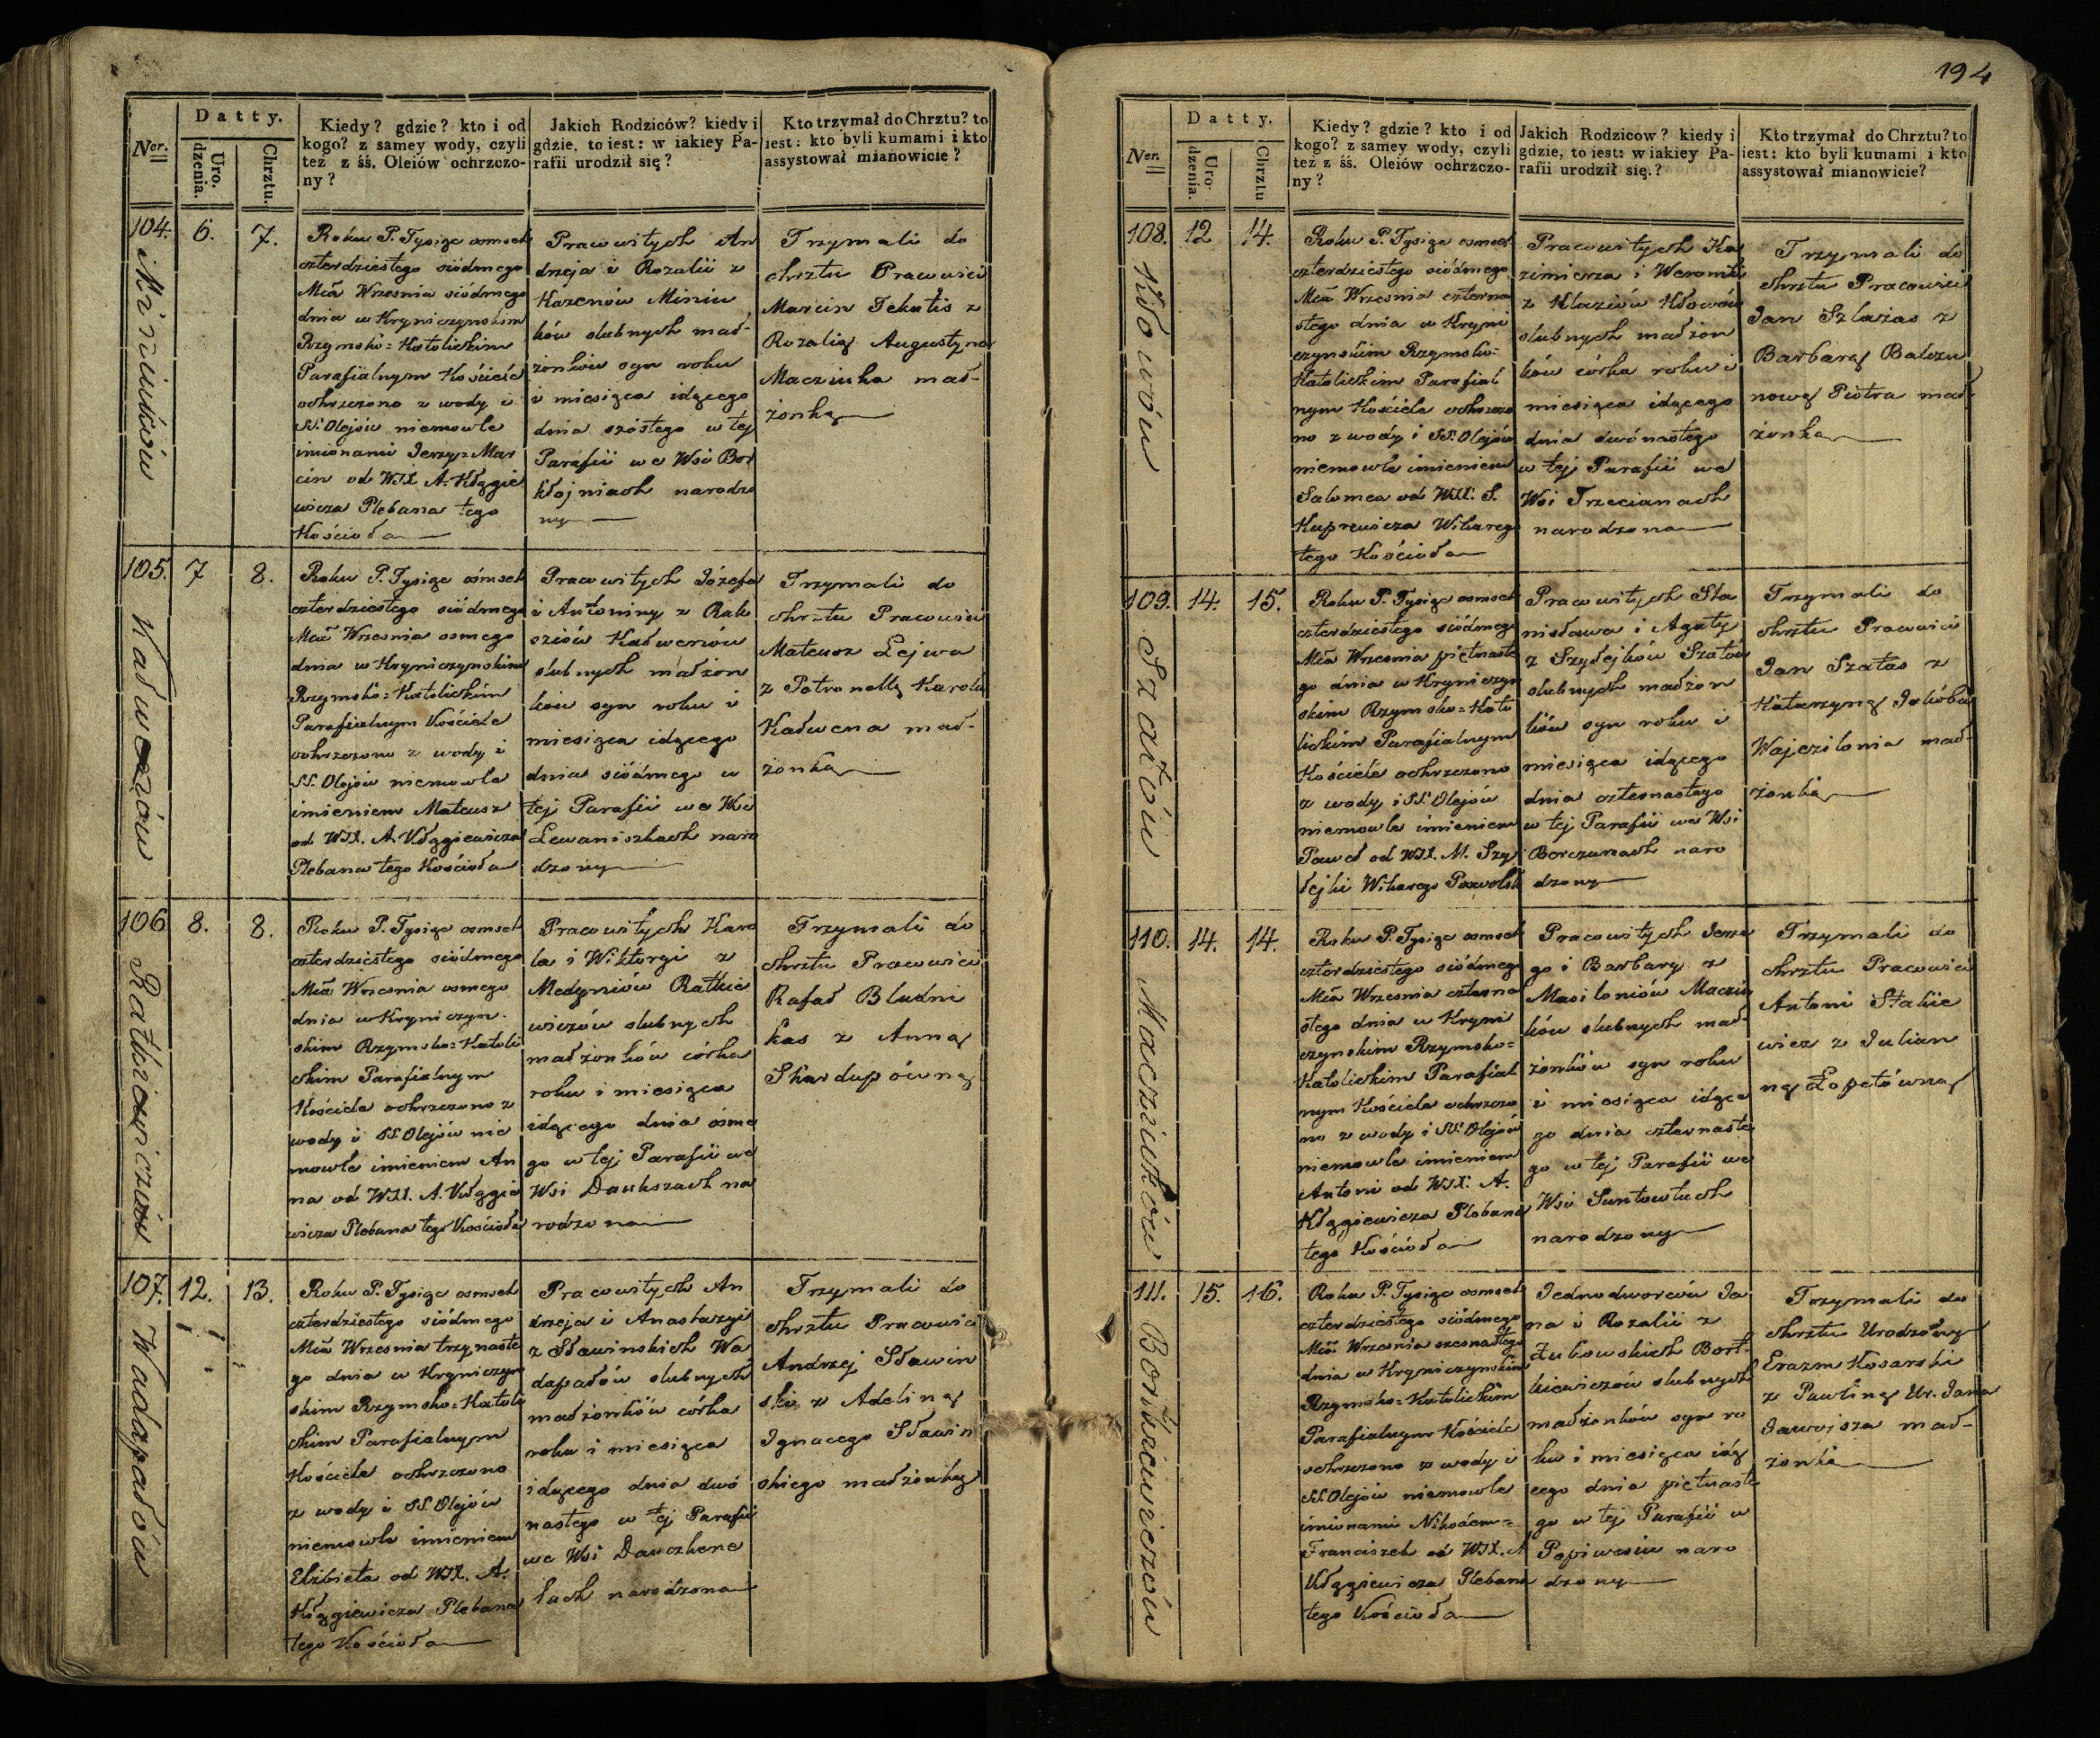 194
Nor.
Datty.
Uro.
dzenia.
Chrztu.
Kiedy? gdzie? kto i od
kogo? z samey wody, czyli
też z śś. Oleiów ochrzczo-
ny?
Jakich Rodziców? kiedy i
gdzie, to iest: w iakiey Pa-
rafii urodził się?
Kto trzymał do Chrztu? to
iest: kto byli kumami i kto
assystował mianowicie?
104.
6.
7.
Miniuków
Roku P. Tysiąc osmset
czterdziestego siódmego
Mca Wrzesnia siódmego
dnia w Kryniczynskim
Rzymsko=Katolickim
Parafialnym Kościele
ochrzczono z wody i
SS. Olejów niemowle
imionami Jerzy=Mar
cin od WJX A. Kłągie
wicza Plebana tego
Kościoła
Pracowitych An
drzeja i Rozalii z
Kazenów Miniu
ków slubnych mał-
żonków syn roku
i miesiąca idącego
dnia szóstego w tej
Parafii we Wsi Bor
kłojniach narodzo
ny
Trzymali do
chrztu Pracowici
Marcin Tekutis z
Rozalią Augustyna
Macziuka mał-
żonką
105.
7
8.
Kałwezów
Roku P. Tysiąc osmset
czterdziestego siódmego
Mca Wrzesnia osmego
dnia w Kryniczynskim
Rzymsko=Katolickim
Parafialnym Kościele
ochrzczono z wody i
SS. Olejów niemowle
imieniem Mateusz
od WJX. A. Kłągiewicza
Plebana tego Kościoła
Pracowitych Józefa
i Antoniny z Rak
sziów Kałwenów
slubnych małżon
ków syn roku i
miesiąca idącego
dnia siódmego w
tej Parafii we Wsi
Lewaniszkach naro
dzony
Trzymali do
chrztu Pracowici
Mateusz Lejwa
z Petronellą Karola
Kałwena mał-
żonką
106
8.
8.
Ratkiewiczów
Roku P. Tysiąc osmset
czterdziestego siódmego
Mca Wrzesnia osmego
dnia w Kryniczyn-
skim Rzymsko=Katoli
ckim Parafialnym
Kościele ochrzczono z
wody i SS. Olejów nie
mowle imieniem An
na od WJX. A. Kłągie
wicza Plebana tego Kościoła
Pracowitych Karo
la i Wiktoryi z
Medyniów Ratkie
wiczów slubnych
małżonków córka
roku i miesiąca
idącego dnia ósme
go w tej Parafii we
Wsi Daukszach na
rodzona
Trzymali do
chrztu Pracowici
Rafał Bludni
kas z Anną
Skardupówną
107.
12.
13.
Wadapałów
Roku P. Tysiąc osmset
czterdziestego siódmego
Mca Wrzesnia trzynaste
go dnia w Kryniczyn
skim Rzymsko=Katoli
ckim Parafialnym
Kościele ochrzczono
z wody i SS. Olejów
niemowle imieniem
Elzbieta od WJX. A.
Kłągiewicza Plebana
tego Kościoła
Pracowitych An
drzeja i Anastazyi
z Sławinskich Wa
dapałów slubnych
małżonków córka
roku i miesiąca
idącego dnia dwó
nastego w tej Parafii
we Wsi Dauczkene
lach narodzona
Trzymali do
chrztu Pracowici
Andrzej Sławin
ski z Adeliną
Ignacego Sławin
skiego małżonką
Nor.
Datty.
Uro-
dzenia.
Chrztu
Kiedy? gdzie? kto i od
kogo? z samey wody, czyli
też z śś. Oleiów ochrzczo-
ny?
Jakich Rodziców? kiedy i
gdzie, to iest: w iakiey Pa-
rafii urodził się.?
Kto trzymał do Chrztu? to
iest: kto byli kumami i kto
assystował mianowicie?
108.
12
14.
Kłowów
Roku P. Tysiąc osmset
czterdziestego siódmego
Mca Wrzesnia czterna
stego dnia w Kryni
czynskim Rzymsko=
Katolickim Parafial
nym Kościele ochrzczo
no z wody i SS. Olejów
niemowle imieniem
Salomea od WJX. S.
Kuprewicza Wikarego
tego Kościoła
Pracowitych Ka
zimierza i Weroniki
z Klaziów Kłowów
slubnych małżon
ków córka roku i
miesiąca idącego
dnia dwónastego
w tej Parafii we
Wsi Trzecianach
narodzona
Trzymali do
chrztu Pracowici
Jan Szlażas z
Barbarą Balczu
nową Piotra mał
żonką
109.
14.
15.
Szałów
Roku P. Tysiąc osmset
czterdziestego siódmego
Mca Wrzesnia piętnaste
go dnia w Kryniczyn
skim Rzymsko=Kato
lickim Parafialnym
Kościele ochrzczono
z wody i SS. Olejów
niemowle imieniem
Paweł od WJX. M. Szy
łejki Wikarego Poszwolsk
Pracowitych Sta
nisława i Agaty
z Szyłejków Szałów
slubnych małżon
ków syn roku i
miesiąca idącego
dnia czternastego
w tej Parafii we Wsi
Borczunach naro
dzony
Trzymali do
chrztu Pracowici
Jan Szałas z
Katarzyną Jakóba
Wajczilonia mał-
żonką
110.
14.
14.
Macziuków
Roku P. Tysiąc osmset
czterdziestego siódmego
Mca Wrzesnia czterna
stego dnia w Kryni
czynskim Rzymsko=
Katolickim Parafial
nym Kościele ochrzczo
no z wody i SS. Olejów
niemowle imieniem
Antoni od WJX. A.
Kłągiewicza Plebana
tego Kościoła
Pracowitych Jerze
go i Barbary z
Masiloniów Macziu
ków slubnych mał-
żonków syn roku
i miesiąca idące
go dnia czternaste
go w tej Parafii we
Wsi Suntowtach
narodzony
Trzymali do
chrztu Pracowici
Antoni Stakie
wicz z Julian
ną Łopetówną
111.
15.
16.
Bortkiewiczów
Roku P. Tysiąc osmset
czterdziestego siódmego
Mca Wrzesnia szesnastego
dnia w Kryniczynskim
Rzymsko=Katolickim
Parafialnym Kościele
ochrzczono z wody i
SS. Olejów niemowle
imionami Nikodem=
Franciszek od WJX. A
Kłągiewicza Plebana
tego Kościoła
Jednodworców Ja
na i Rozalii z
Żukowskich Bort-
kiewiczów slubnych
małżonków syn ro
ku i miesiąca idą
cego dnia piętnaste
go w tej Parafii w
Popiwesiu naro
dzony
Trzymali do
chrztu Urodzony
Erazm Kosarski
z Pauliną Ur. Jana
Jawojsza mał-
żonką